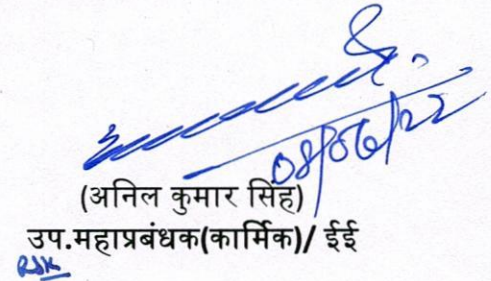 08/06/22
(अनिल कुमार सिंह)
उप.महाप्रबंधक(कार्मिक)/ ईई